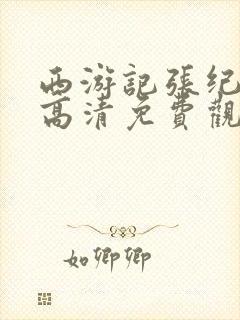 西游記張纪
高清免費觀
如卿卿